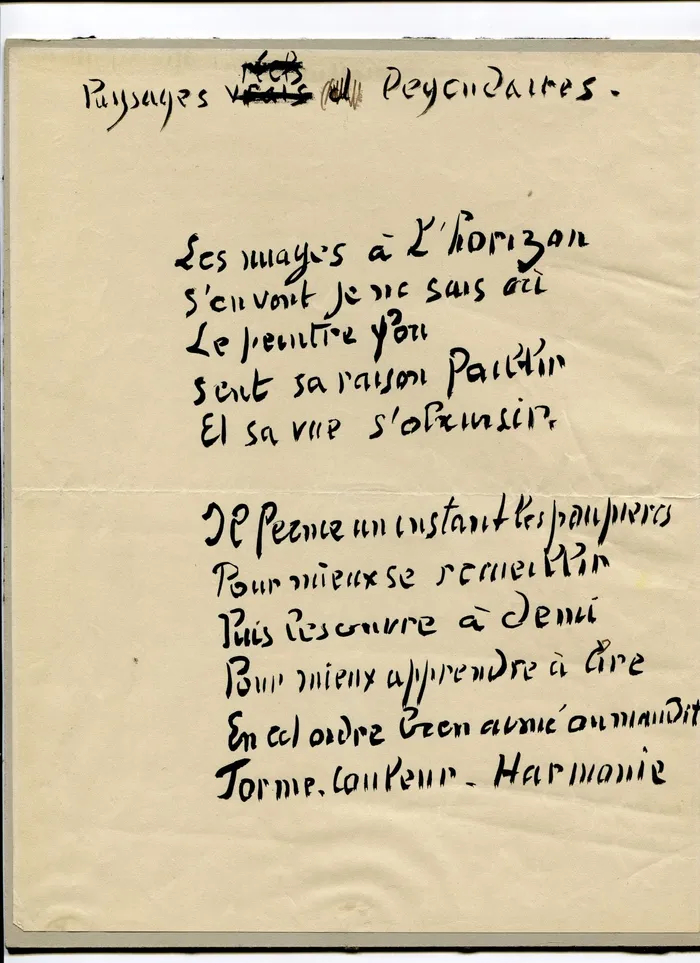 Paysages Legendaires.
Les nuages à L'horizon
s'en vont je ne sais où
Le peintre
sent sa raison
Et sa vue s'obscursir.
Il ferme un instant les paupieres
Pour mieux se recueillir
Puis les ouvre à demi
Pour mieux apprendre à lire
En cet ordre bien aimé ou maudit
Forme. Couleur - Harmonie